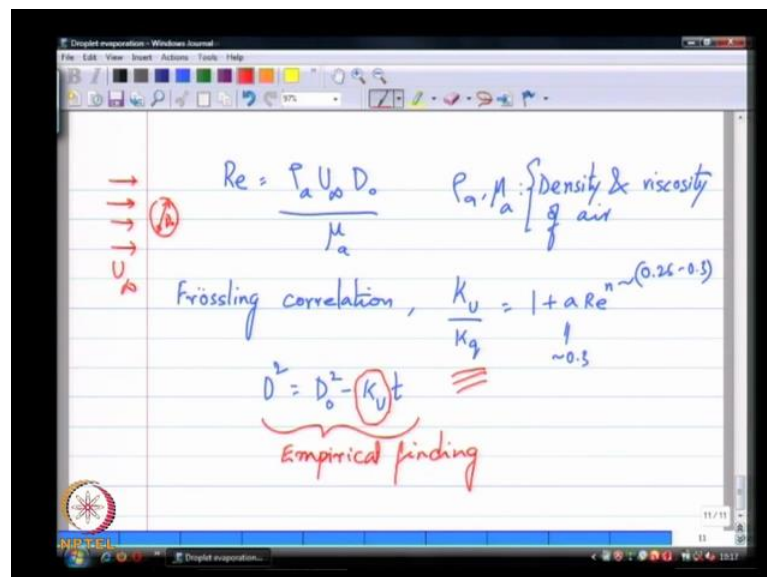 Droplet evaporation - Windows Journal
File Edit View Insert Actions Tools Help
B I
97%
Re = ρₐ U∞ D₀ / μₐ
ρₐ, μₐ : { Density & viscosity of air
U∞
D₀
Frössling correlation, Kᵤ / K_q = 1 + a Reⁿ ~ (0.26-0.3)
~0.3
D² = D₀² - Kᵤ t
Empirical finding
11 / 11
11
NPTEL
Droplet evaporation...
10:17